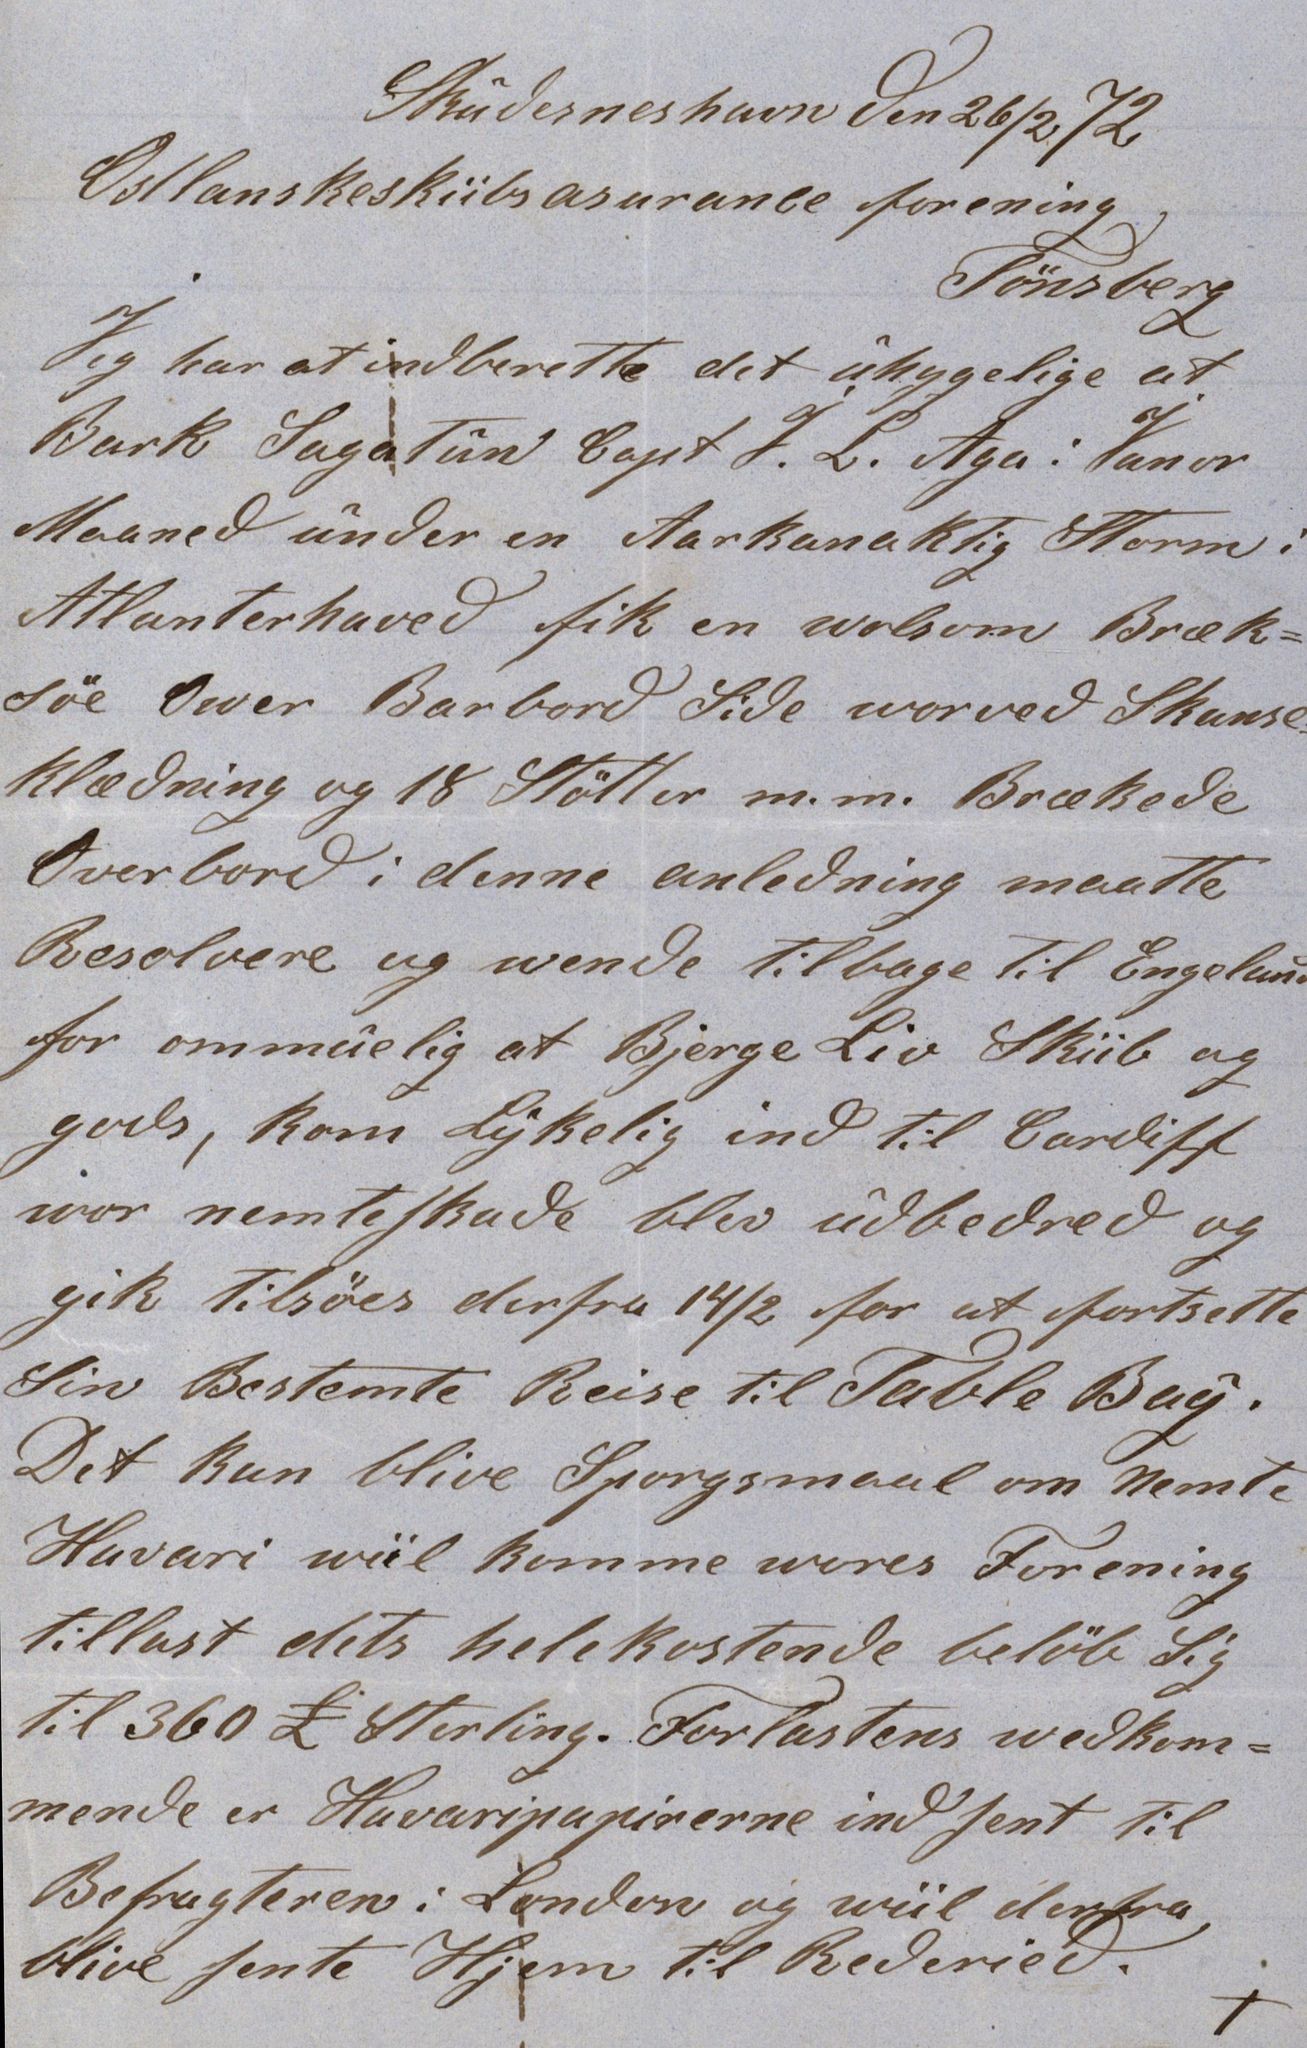 Skûdesneshavn den 26/2 72
Ostlanskeskiibsasurance forening
Tönsberg
Jeg har at indberette det ûhygelige at
Bark Sagatûn Capt J. L. Aga i Janor
Maaned ûnder en Aarkanaktig Storm i
Atlanterhaved fik en wolsom Bræk=
söe Over Barbord Side worved Skanse=
klædning og 18 Stötter m.m. Brækede
Overbord i denne anledning maatte
Resolvere og wende tilbage til Engeland
for ommûelig at Bjerge Liv Skiib og
gods, kom Lÿkelig ind til Cardiff
wor nemteskade blev ûdbedred og
gik tilsöes derfra 14/2 for at fortsette
Sin Bestemte Reise til Table Baÿ.
Det kan blive Sporgsmaal om Nemte
Havari wiil komme wores Forening
tillast dets helekostende belöb Sig
til 360 £ Sterling. Forlastens wedkom=
mende er Havaripapirerne ind sent til
Befragteren i London og wiil derfra
blive sente Hjem til Rederied.
+